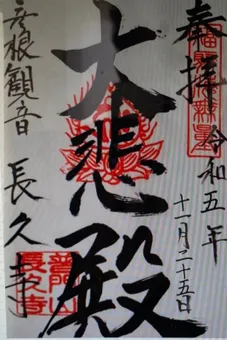 奉拝
令和五年
十一月二十五日
大悲殿
彦根観音
長久寺
普門山
長久寺